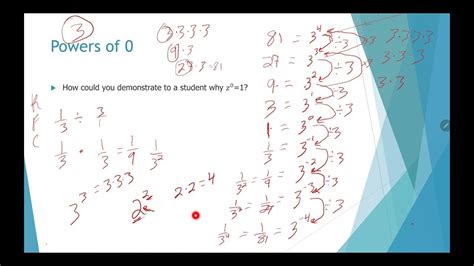 3
Powers of 0
2·3·3·3
9·3
27·3=81
How could you demonstrate to a student why z⁰=1?
K
F
C
1/3 ÷ 3/1
1/3 · 1/3 = 1/9 1/3²
3³ = 3·3·3
2²
2·2=4
81 = 3⁴ ÷3 3·3·3·3
27 = 3³ ÷3 3·3·3
9 = 3² ÷3 3·3
3 = 3¹ ÷3
1 = 3⁰ ÷3
1/3 = 3⁻¹ ÷3
1/3² = 1/9 = 3⁻² ÷3
1/3³ = 1/27 = 3⁻³ ÷3
1/3⁴ = 1/81 = 3⁻⁴